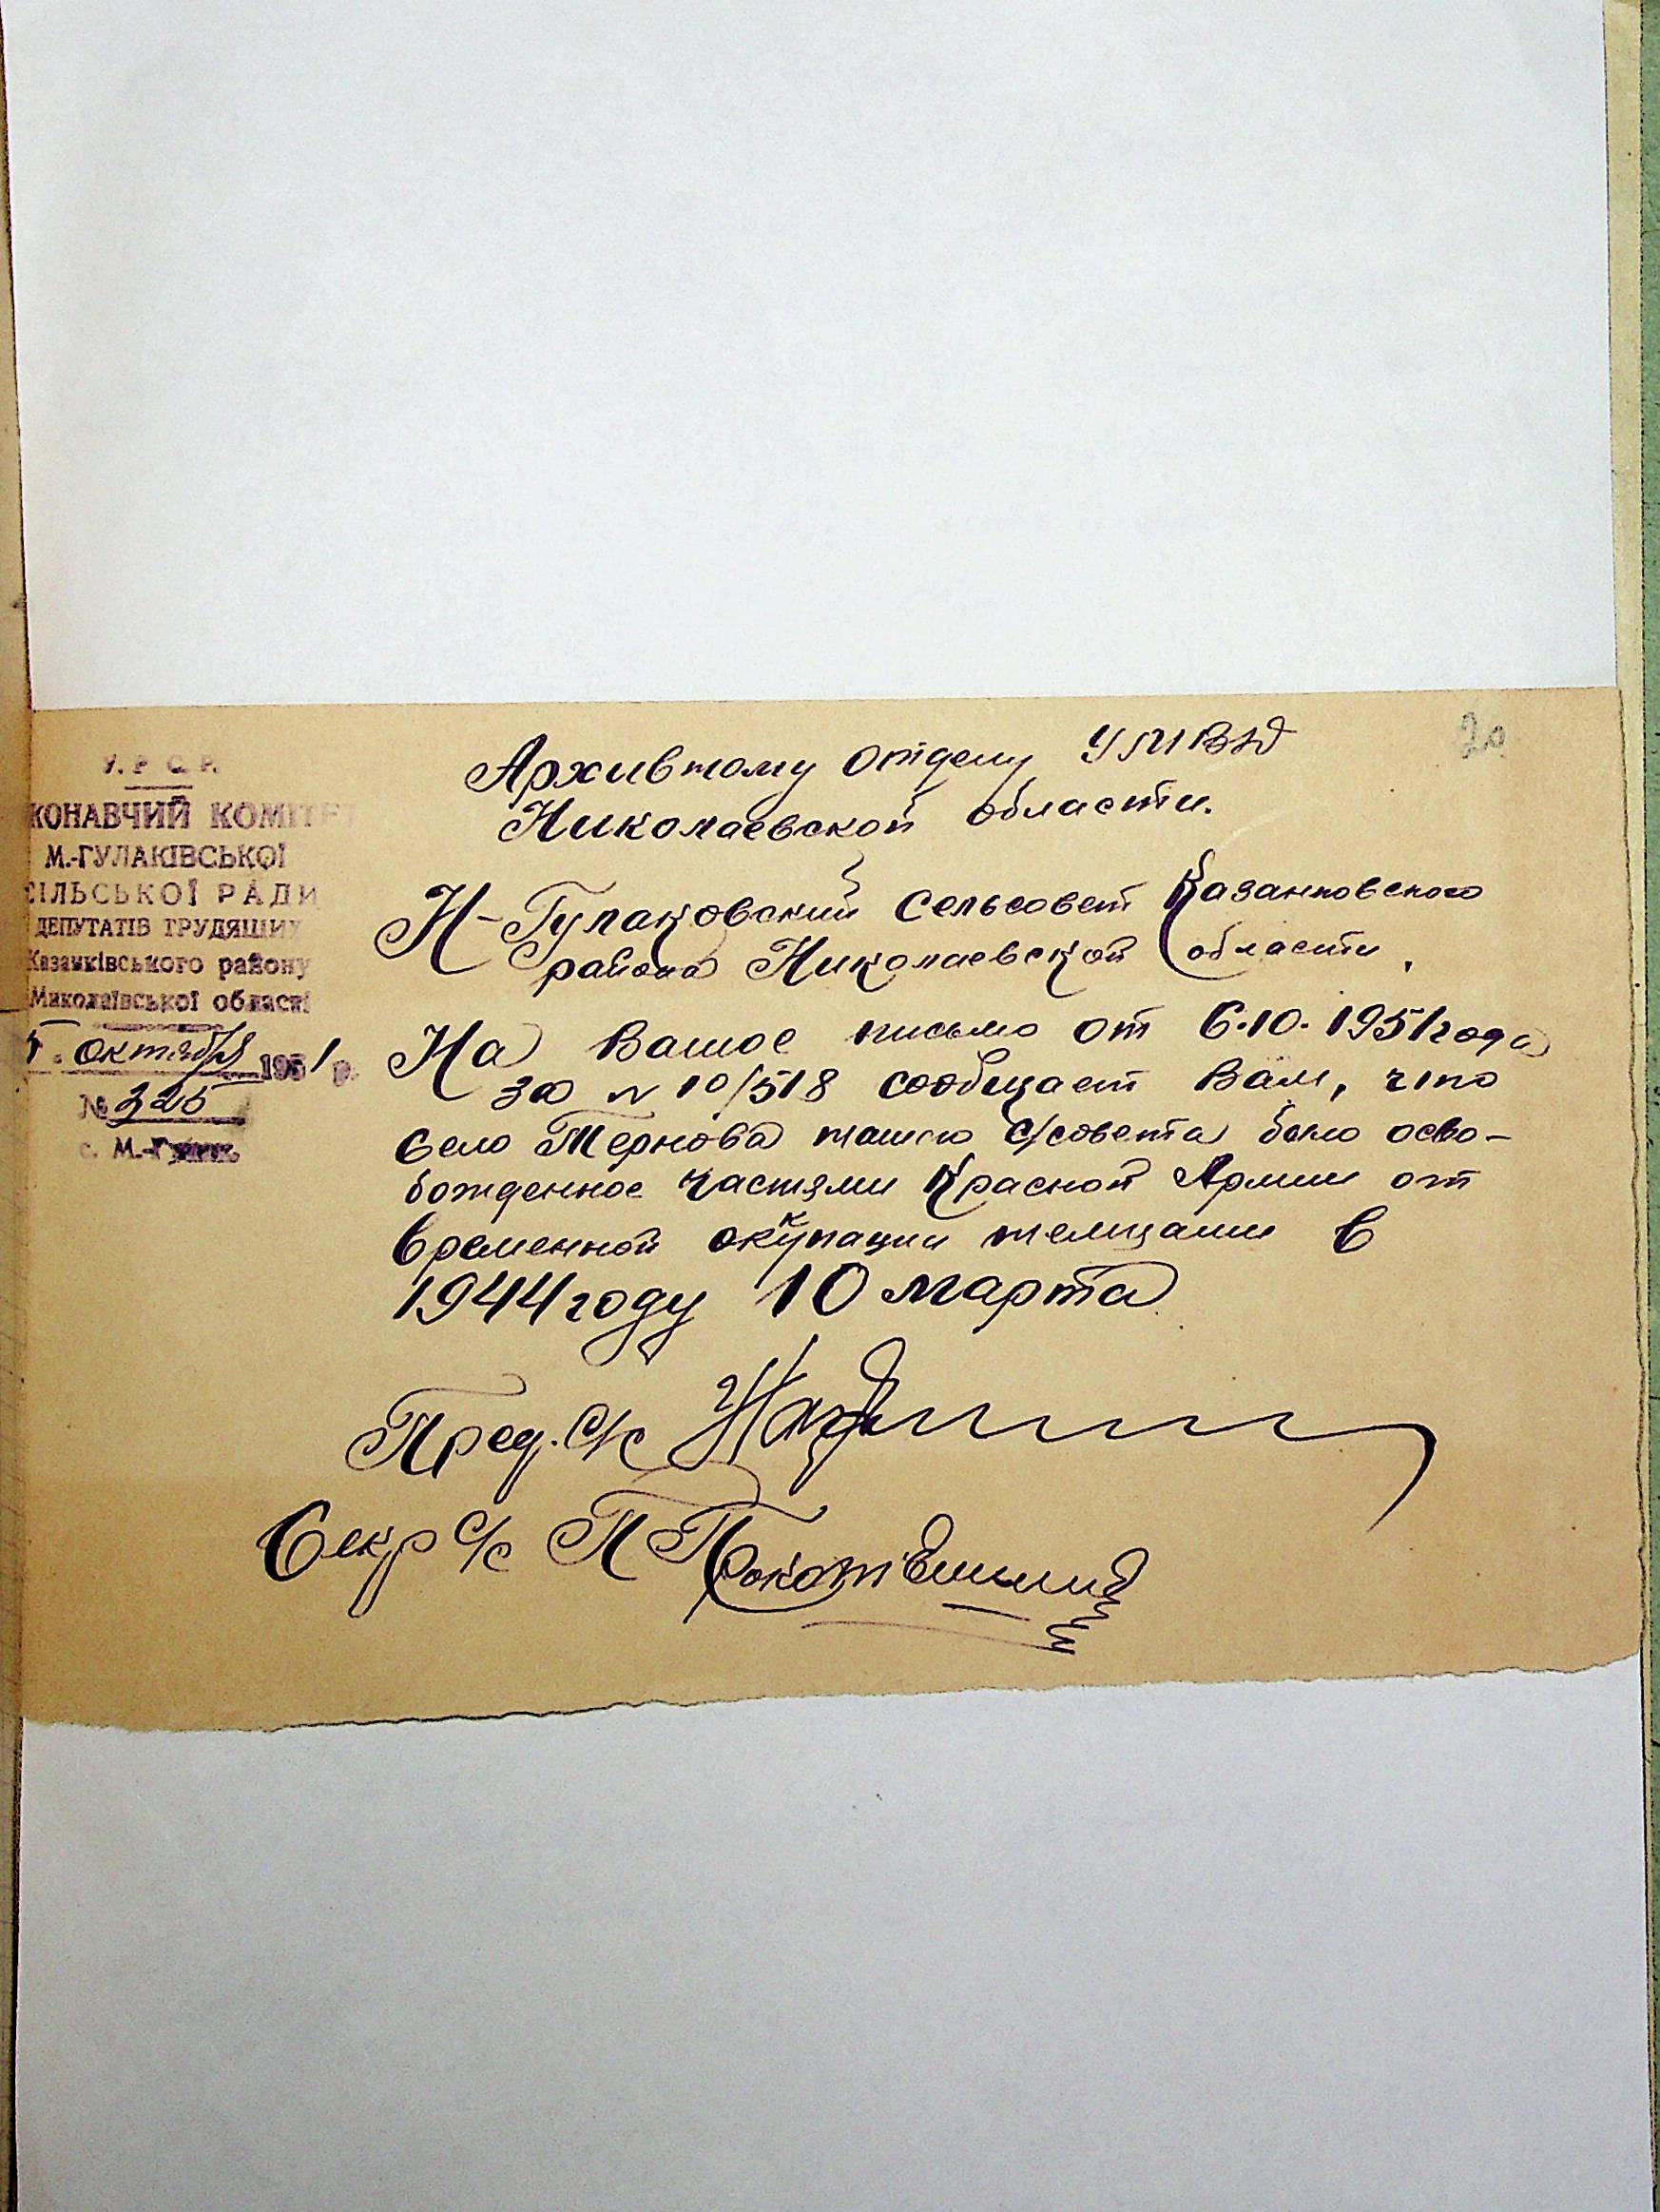 20
У.Р.С.Р.
КОНАВЧИЙ КОМІТЕ
М.-ГУЛАКІВСЬКОЇ
СІЛЬСЬКОЇ РАДИ
ДЕПУТАТІВ ТРУДЯЩИХ
Казанківського району
Миколаївської області
октября 1951 р.
№ 325
с. М.-
Архивному отделу УМВД
Николаевской области.
Н-Гулаковский сельсовет Казанковского
района Николаевской области,
На Вашое письмо от 6.10.1951 года
за № 10/518 сообщает Вам, что
село Тернова нашего с/совета было осво-
божденное частями Красной Армии от
временной оккупации немцами в
1944 году 10 марта
Пред. с/с
Секр с/с П